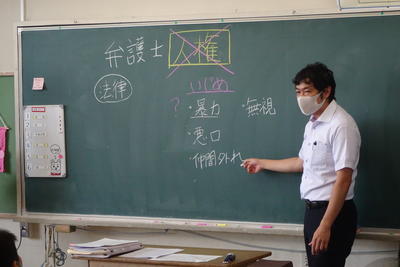 弁護士 人権
法律 いじめ
? ・暴力 ・無視
・悪口
・仲間外れ